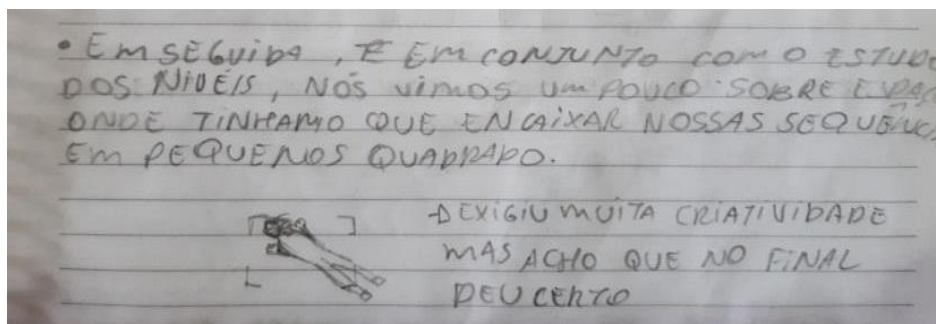 • EM SEGUIDA, E EM CONJUNTO COM O ESTUDO
DOS NIVEIS, NÓS VIMOS UM POUCO SOBRE ESPAÇ
ONDE TINHAMO QUE ENCAIXAR NOSSAS SEQUÊNCI
EM PEQUENOS QUADRADO.
→ EXIGIU MUITA CRIATIVIDADE
MAS ACHO QUE NO FINAL
DEU CERTO